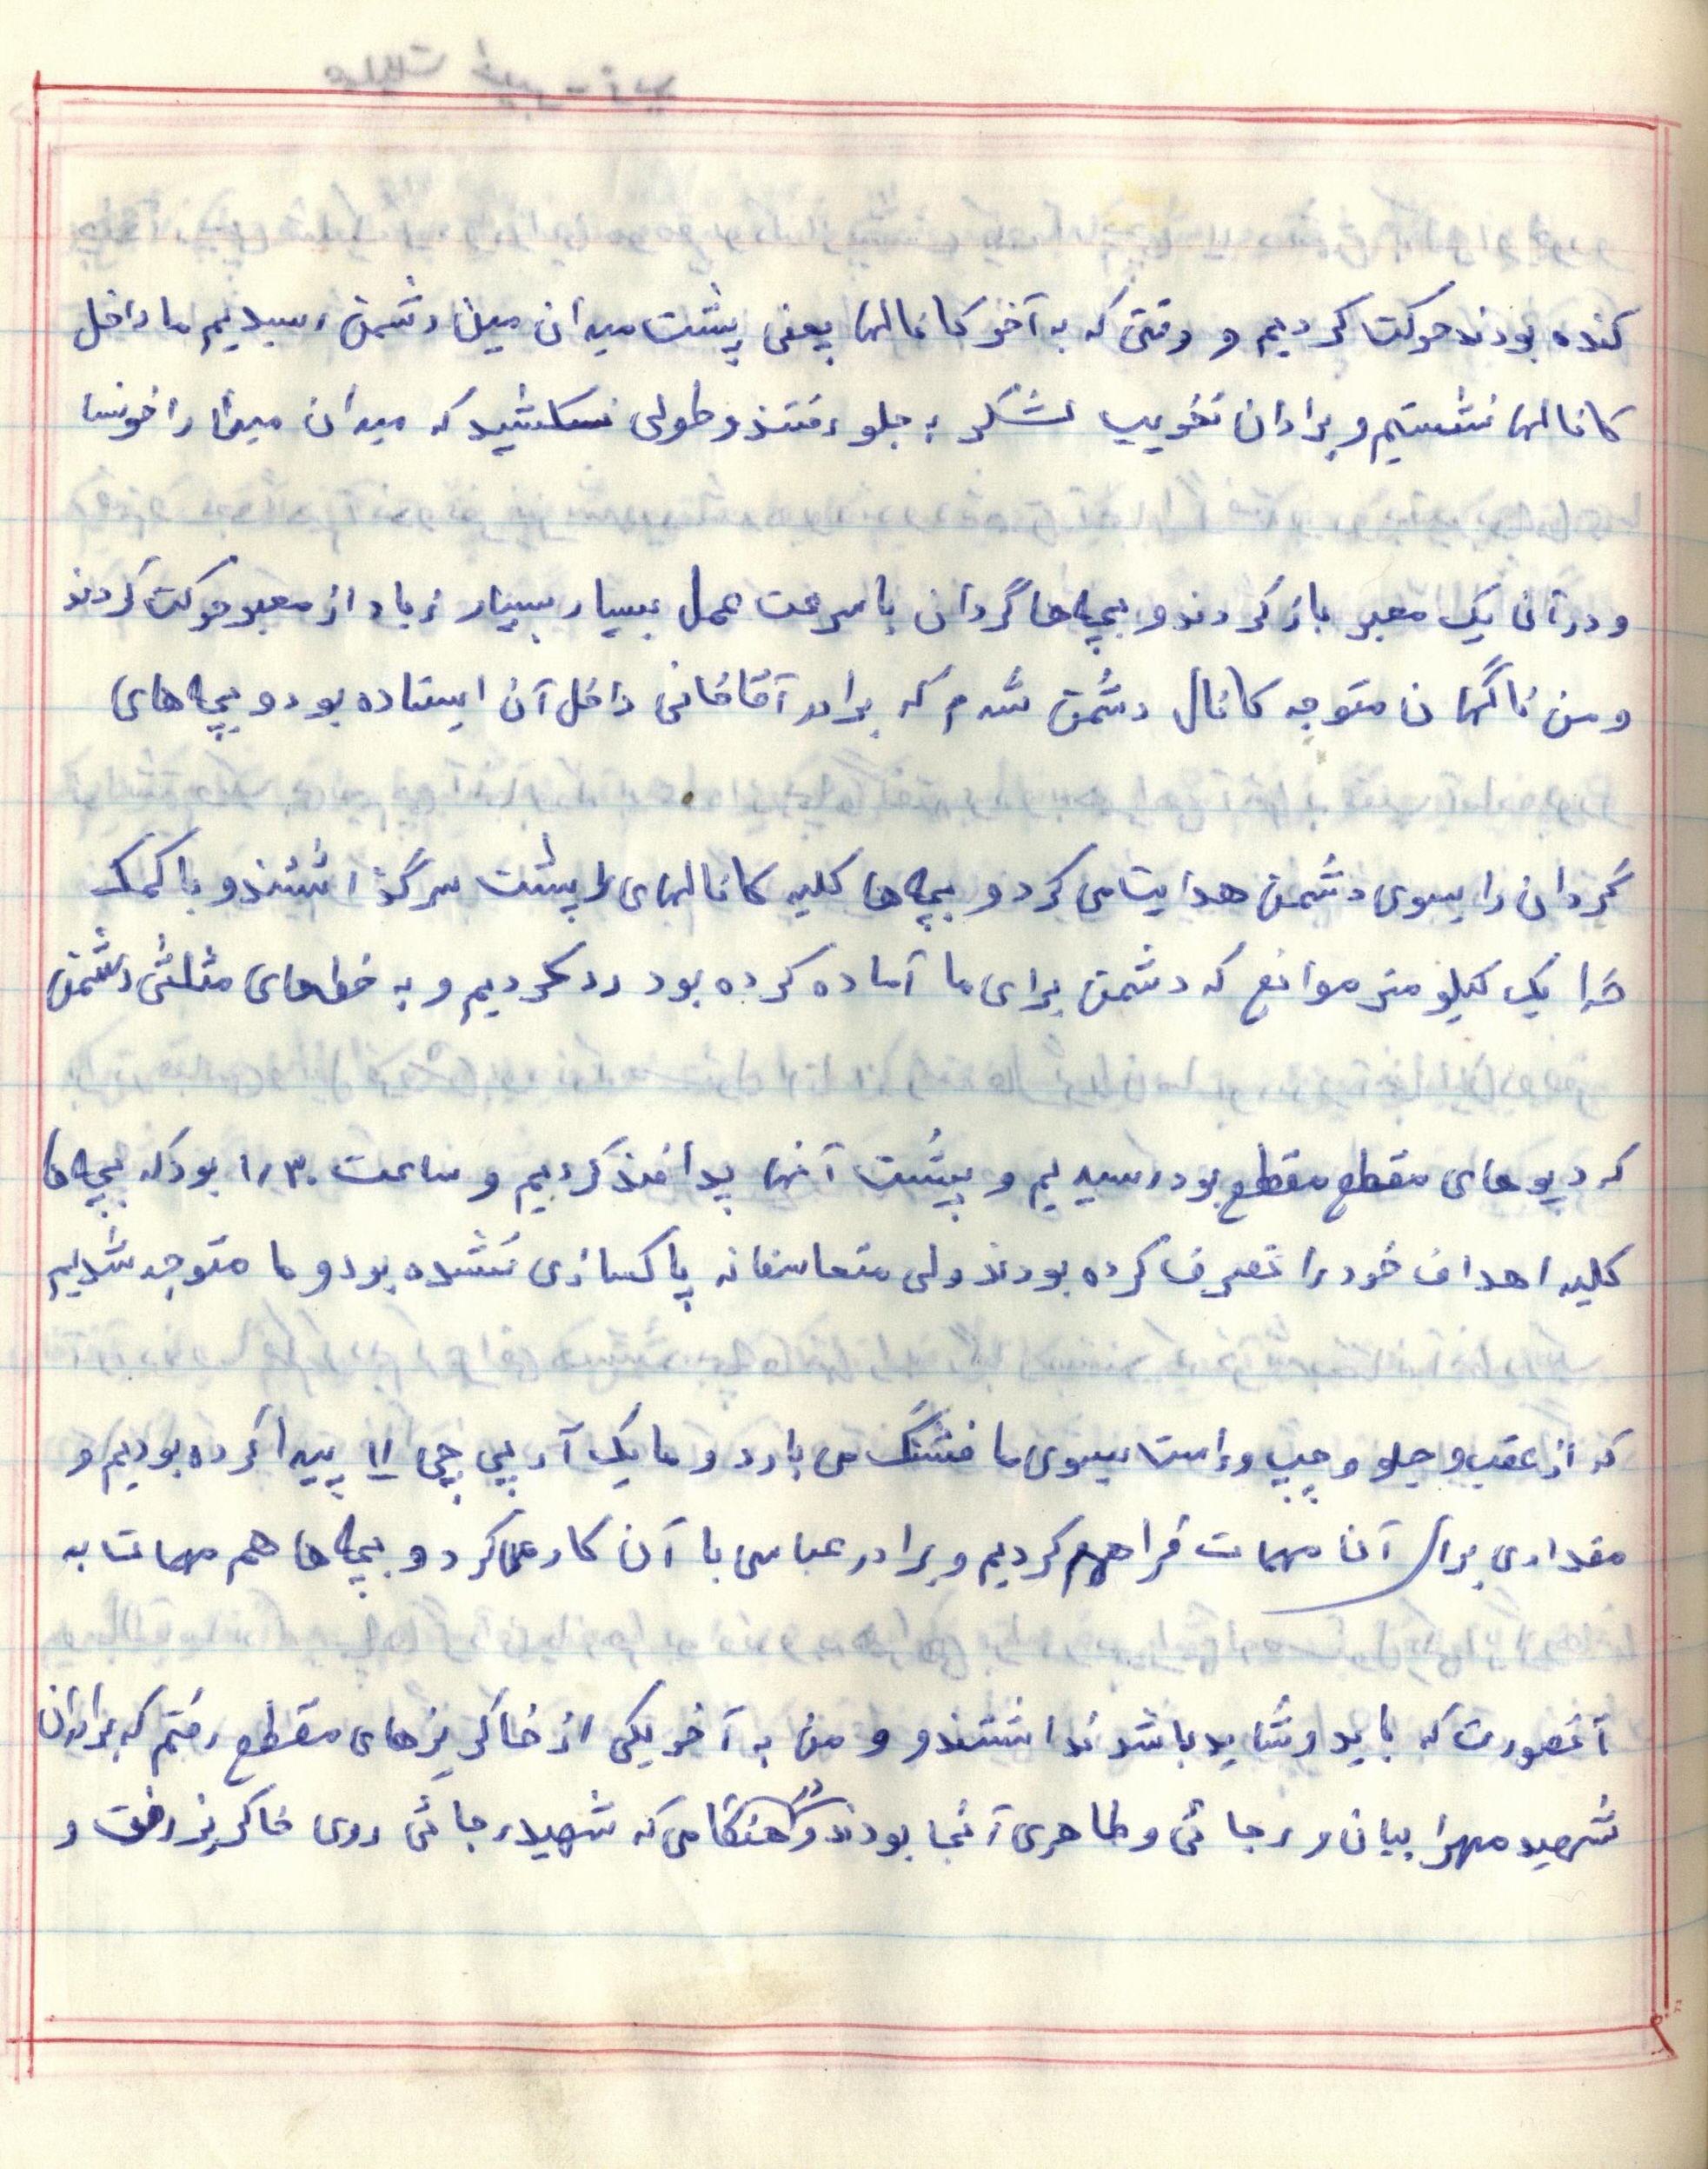 کنده بودند حرکت کردیم و وقتی که به آخر کانالها یعنی پشت میدان مین دشمن رسیدیم ما داخل
کانالها نشستیم و برادران تخریب لشکر به جلو رفتند و طولی نکشید که میدان مین را خونسا
و در آن یک معبر باز کردند و بچه ها گردان با سرعت عمل بسیار بسیار زیاد از معبر حرکت کردند
و من ناگهان متوجه کانال دشمن شدم که برادر آقاخانی داخل آن ایستاده بود و بچه های
گردان را بسوی دشمن هدایت می کرد و بچه ها کلیه کانالهای را پشت سر گذاشتند و با کمک
خدا یک کیلو متر موانع که دشمن برای ما آماده کرده بود رد کردیم و به خط های مثلثی دشمن
که دپوهای مقطع مقطع بود رسیدیم و پشت آنها پدافند کردیم و ساعت ۱/۳۰ بود که بچه ها
کلیه اهداف خود را تصرف کرده بودند ولی متعاسفانه پاکسازی نشده بود و ما متوجه شدیم
که از عقب و جلو و چپ و راست بسوی ما فشنگ می بارد و ما یک آر پی جی ۱۱ پیدا کرده بودیم و
مقداری برای آن مهمات فراهم کردیم و برادر عباسی با آن کار می کرد و بچه ها هم مهمات به
آنصورت که باید و شاید باشد نداشتند و و من به آخر یکی از خاکریزهای مقطع رفتم که برادران
شهید مهرابیان و رجائی و طاهری آنجا بودند و در هنگامی که شهید رجائی روی خاکریز رفت و